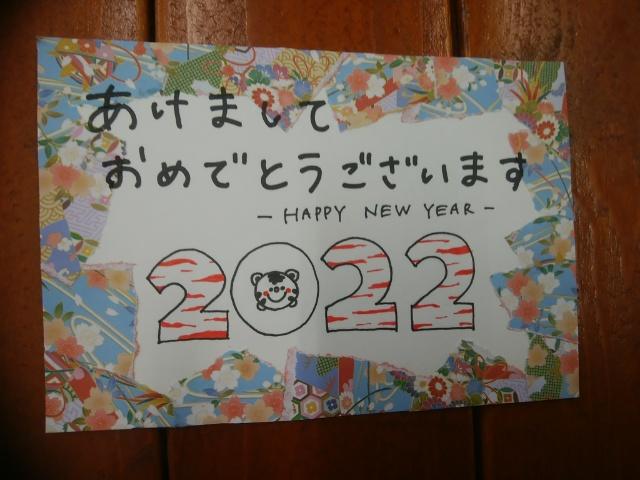 あけまして
おめでとうございます
- HAPPY NEW YEAR -
2022